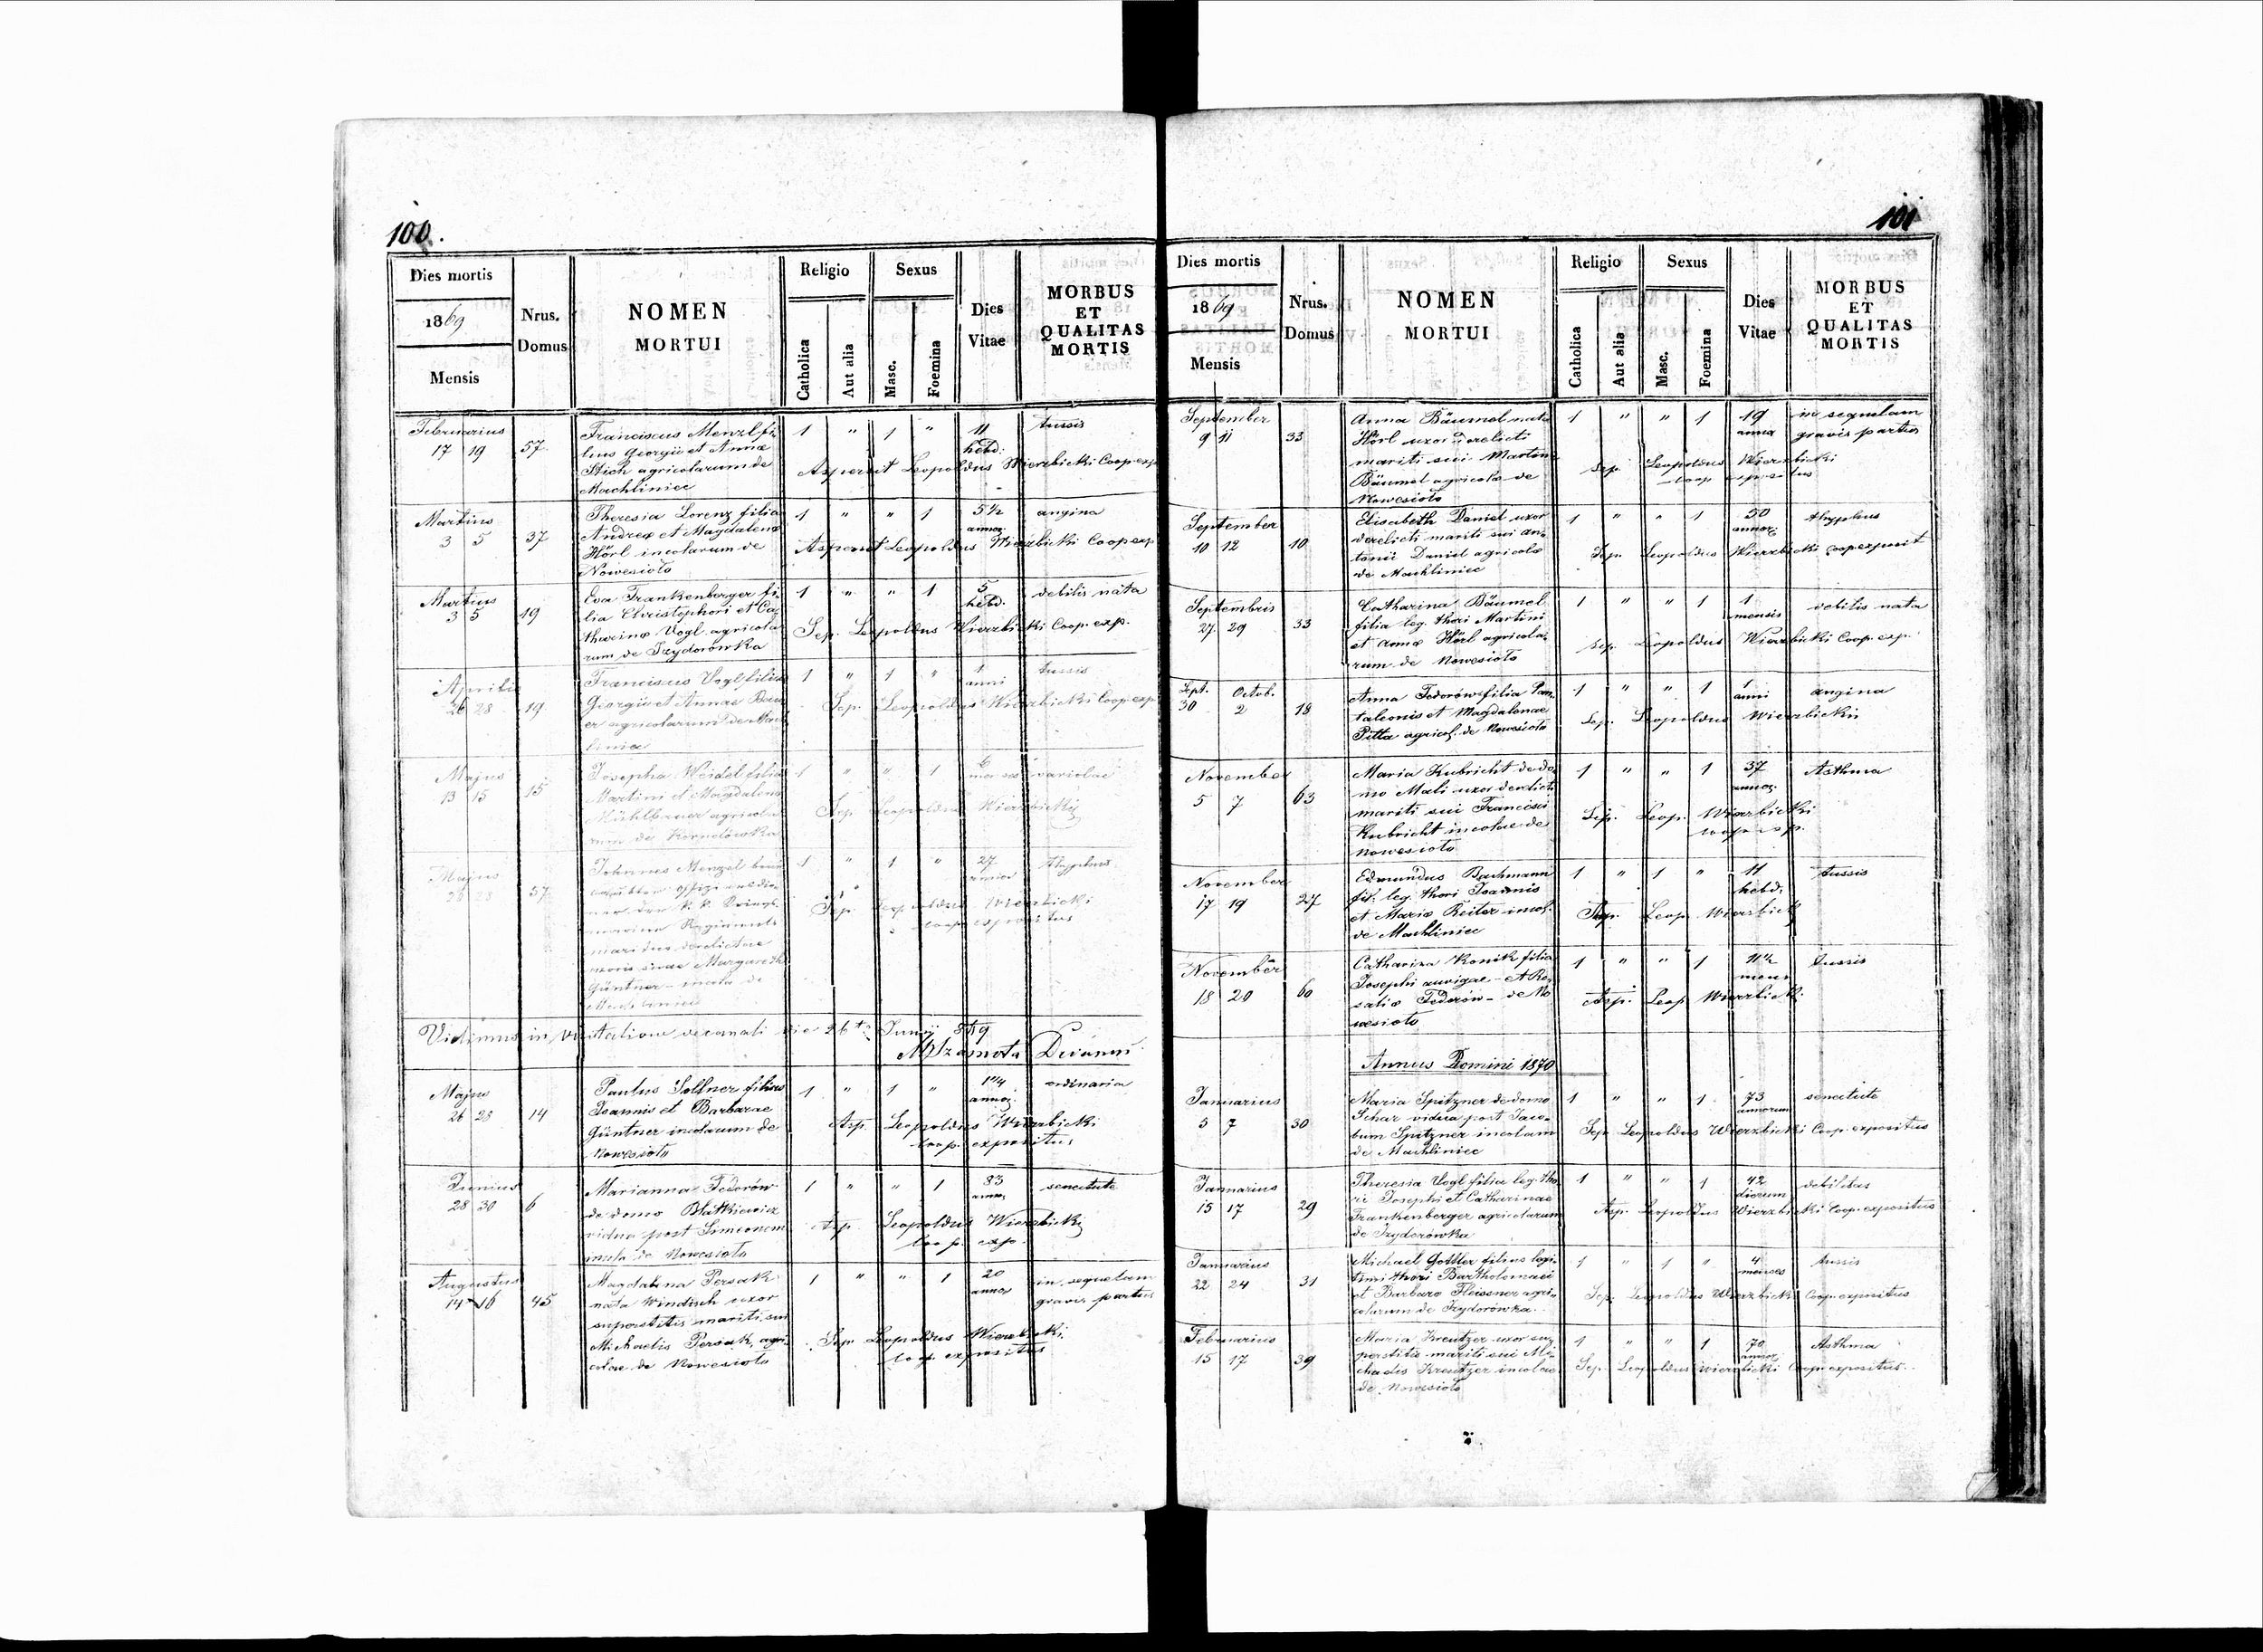 100.
Dies mortis
1869
Mensis
Nrus.
Domus
NOMEN
MORTUI
Religio
Catholica
Aut alia
Sexus
Masc.
Foemina
Dies
Vitae
MORBUS
ET
QUALITAS
MORTIS
Februarius
17 19 57.
Franciscus Menzl fi-
lius Georgii et Annæ
Stich agricolarum de
Machliniec
1 " 1 " 11 hebd: tussis
Aspersit Leopoldus Wierzbicki Coop exp
Martius
3 5 37
Theresia Lorenz filia
Andreæ et Magdalena
Hörl incolarum de
Nowesioło
1 " " 1 5½ annor. angina
Aspersit Leopoldus Wierzbicki Coop exp
Martius
3 5 19
Eva Frankenberger fi-
lia Christophori et Ca-
tharinæ Vogl agricola-
rum de Izydorówka
1 " " 1 5 hebd. debilis nata
Sep. Leopoldus Wierzbicki Coop. exp.
Aprilis
26 28 19
Franciscus Vogl filius
Georgii et Annae Bau
er agricolarum de Mach
liniec
1 " 1 " 1 anni tussis
Sep. Leopoldus Wierzbicki Coop exp
Majus
13 15 15
Josepha Weidel filia
Martini et Magdalena
Mühlbauer agricola
rum de Korneló­wka
1 " " 1 6 menses variolae
Sep Leopoldus Wierzbicki
Majus
26 28 57
Johannes Menzel
Offizirsdie-
ner der K. K.
Regiments
maritus derelictae
uxoris suae Margareth
Güntner nata de
Machliniec
1 " 1 " 27 annor thyphus
Sep. Leopoldus Wierzbicki
coop expositus
Vidimus in visitatione decanali die 26ta Junij 869
Decanus
Majus
26 28 14
Paulus Sollner filius
Joannis et Barbarae
Güntner incolarum de
Nowesioło
1 " 1 " 1¼ annor. ordinaria
Asp. Leopoldus Wierzbicki
Coop. expositus
Junius
28 30 6
Marianna Fedorów
de domo Blatkiewicz
vidua post Simeonem
incola de Nowesioło
1 " " 1 83 annor senectute
Asp Leopoldus Wierzbicki
Coop. exp.
Augustus
14 16 45
Magdalena Persak
nata Windisch uxor
superstitis mariti sui
Michaelis Persak, agri-
colae de Nowesioło
1 " " 1 20 annor in sequelam
gravis partus
Sep Leopoldus Wierzbicki
Coop. expositus
101
Dies mortis
1869
Mensis
Nrus.
Domus
NOMEN
MORTUI
Religio
Catholica
Aut alia
Sexus
Masc.
Foemina
Dies
Vitae
MORBUS
ET
QUALITAS
MORTIS
September
9 11 33
Anna Bäumel nata
Hörl uxor derelicti
mariti sui Martini
Bäumel agricolæ de
Nowesioło
1 " " 1 19 annor in sequelam
gravis partus
Sep. Leopoldus Wierzbicki
coop expositus
September
10 12 10
Elisabeth Daniel uxor
derelicti mariti sui An-
tonii Daniel agricolæ
de Machliniec
1 " " 1 50 annor. thyphus
Sep. Leopoldus Wierzbicki coop exposit
Septembris
27. 29 33
Catharina Bäumel
filia leg. thori Martini
et Annæ Hörl agricola-
rum de Nowesioło
1 " " 1 1 mensis debilis nata
Sep. Leopoldus Wierzbicki Coop. exp.
Sept. Octob.
30 2 18
Anna Fedorów filia Pan-
taleonis et Magdalenae
Pitta agricol. de Nowesioło
1 " " 1 1 anni angina
Sep. Leopoldus Wierzbicki
November
5 7 63
Maria Kubricht de do-
mo Mali uxor derelicti
mariti sui Francisci
Kubricht incolae de
Nowesioło
1 " " 1 37 annor. Asthma
Sep. Leop. Wierzbicki
coop exp.
November
17 19 27
Edmundus Bachmann
fil. leg. thori Joannis
et Mariæ Reiter incol.
de Machliniec
1 " 1 " 11 hebd. tussis
Sep. Leop. Wierzbicki
November
18 20 60
Catharina Konik filia
Josephi aurigae et Ro-
saliæ Fedorów de No
wesioło
1 " " 1 11½ mens tussis
Asp. Leop Wierzbicki.
Annus Domini 1870
Januarius
5 7 30
Maria Spitzner de domo
Schar vidua post Jaco-
bum Spitzner incolam
de Machliniec
1 " " 1 73 annorum senectute
Sep Leopoldus Wierzbicki Coop. expositus
Januarius
15 17 29
Theresia Vogl filia leg. tho-
ri Josephi et Catharinae
Frankenberger agricolarum
de Izydorówka
1 " " 1 42 dierum debilitas
Asp. Leopoldus Wierzbicki Coop. expositus
Januarius
22 24 31
Michael Gottler filius legi-
timi thori Bartholomaei
et Barbara Fleissner agri-
colarum de Izydorówka.
1 " 1 " 4 menses tussis
Sep. Leopoldus Wierzbicki Coop. expositus
Februarius
15 17 39
Maria Kreutzer uxor su-
perstitis mariti sui Mi-
chaelis Kreutzer incolae
de Nowesioło
1 " " 1 70 annor Asthma
Sep. Leopoldus Wierzbicki Coop. expositus.